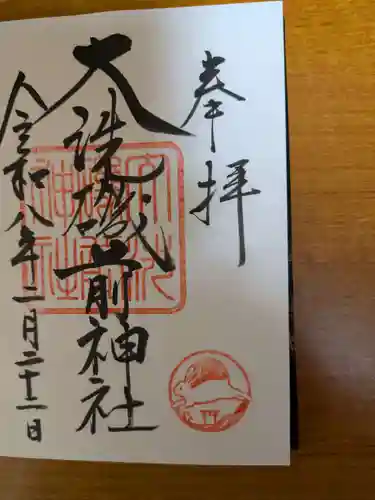 奉拝
大洗磯前神社
令和八年二月二十二日